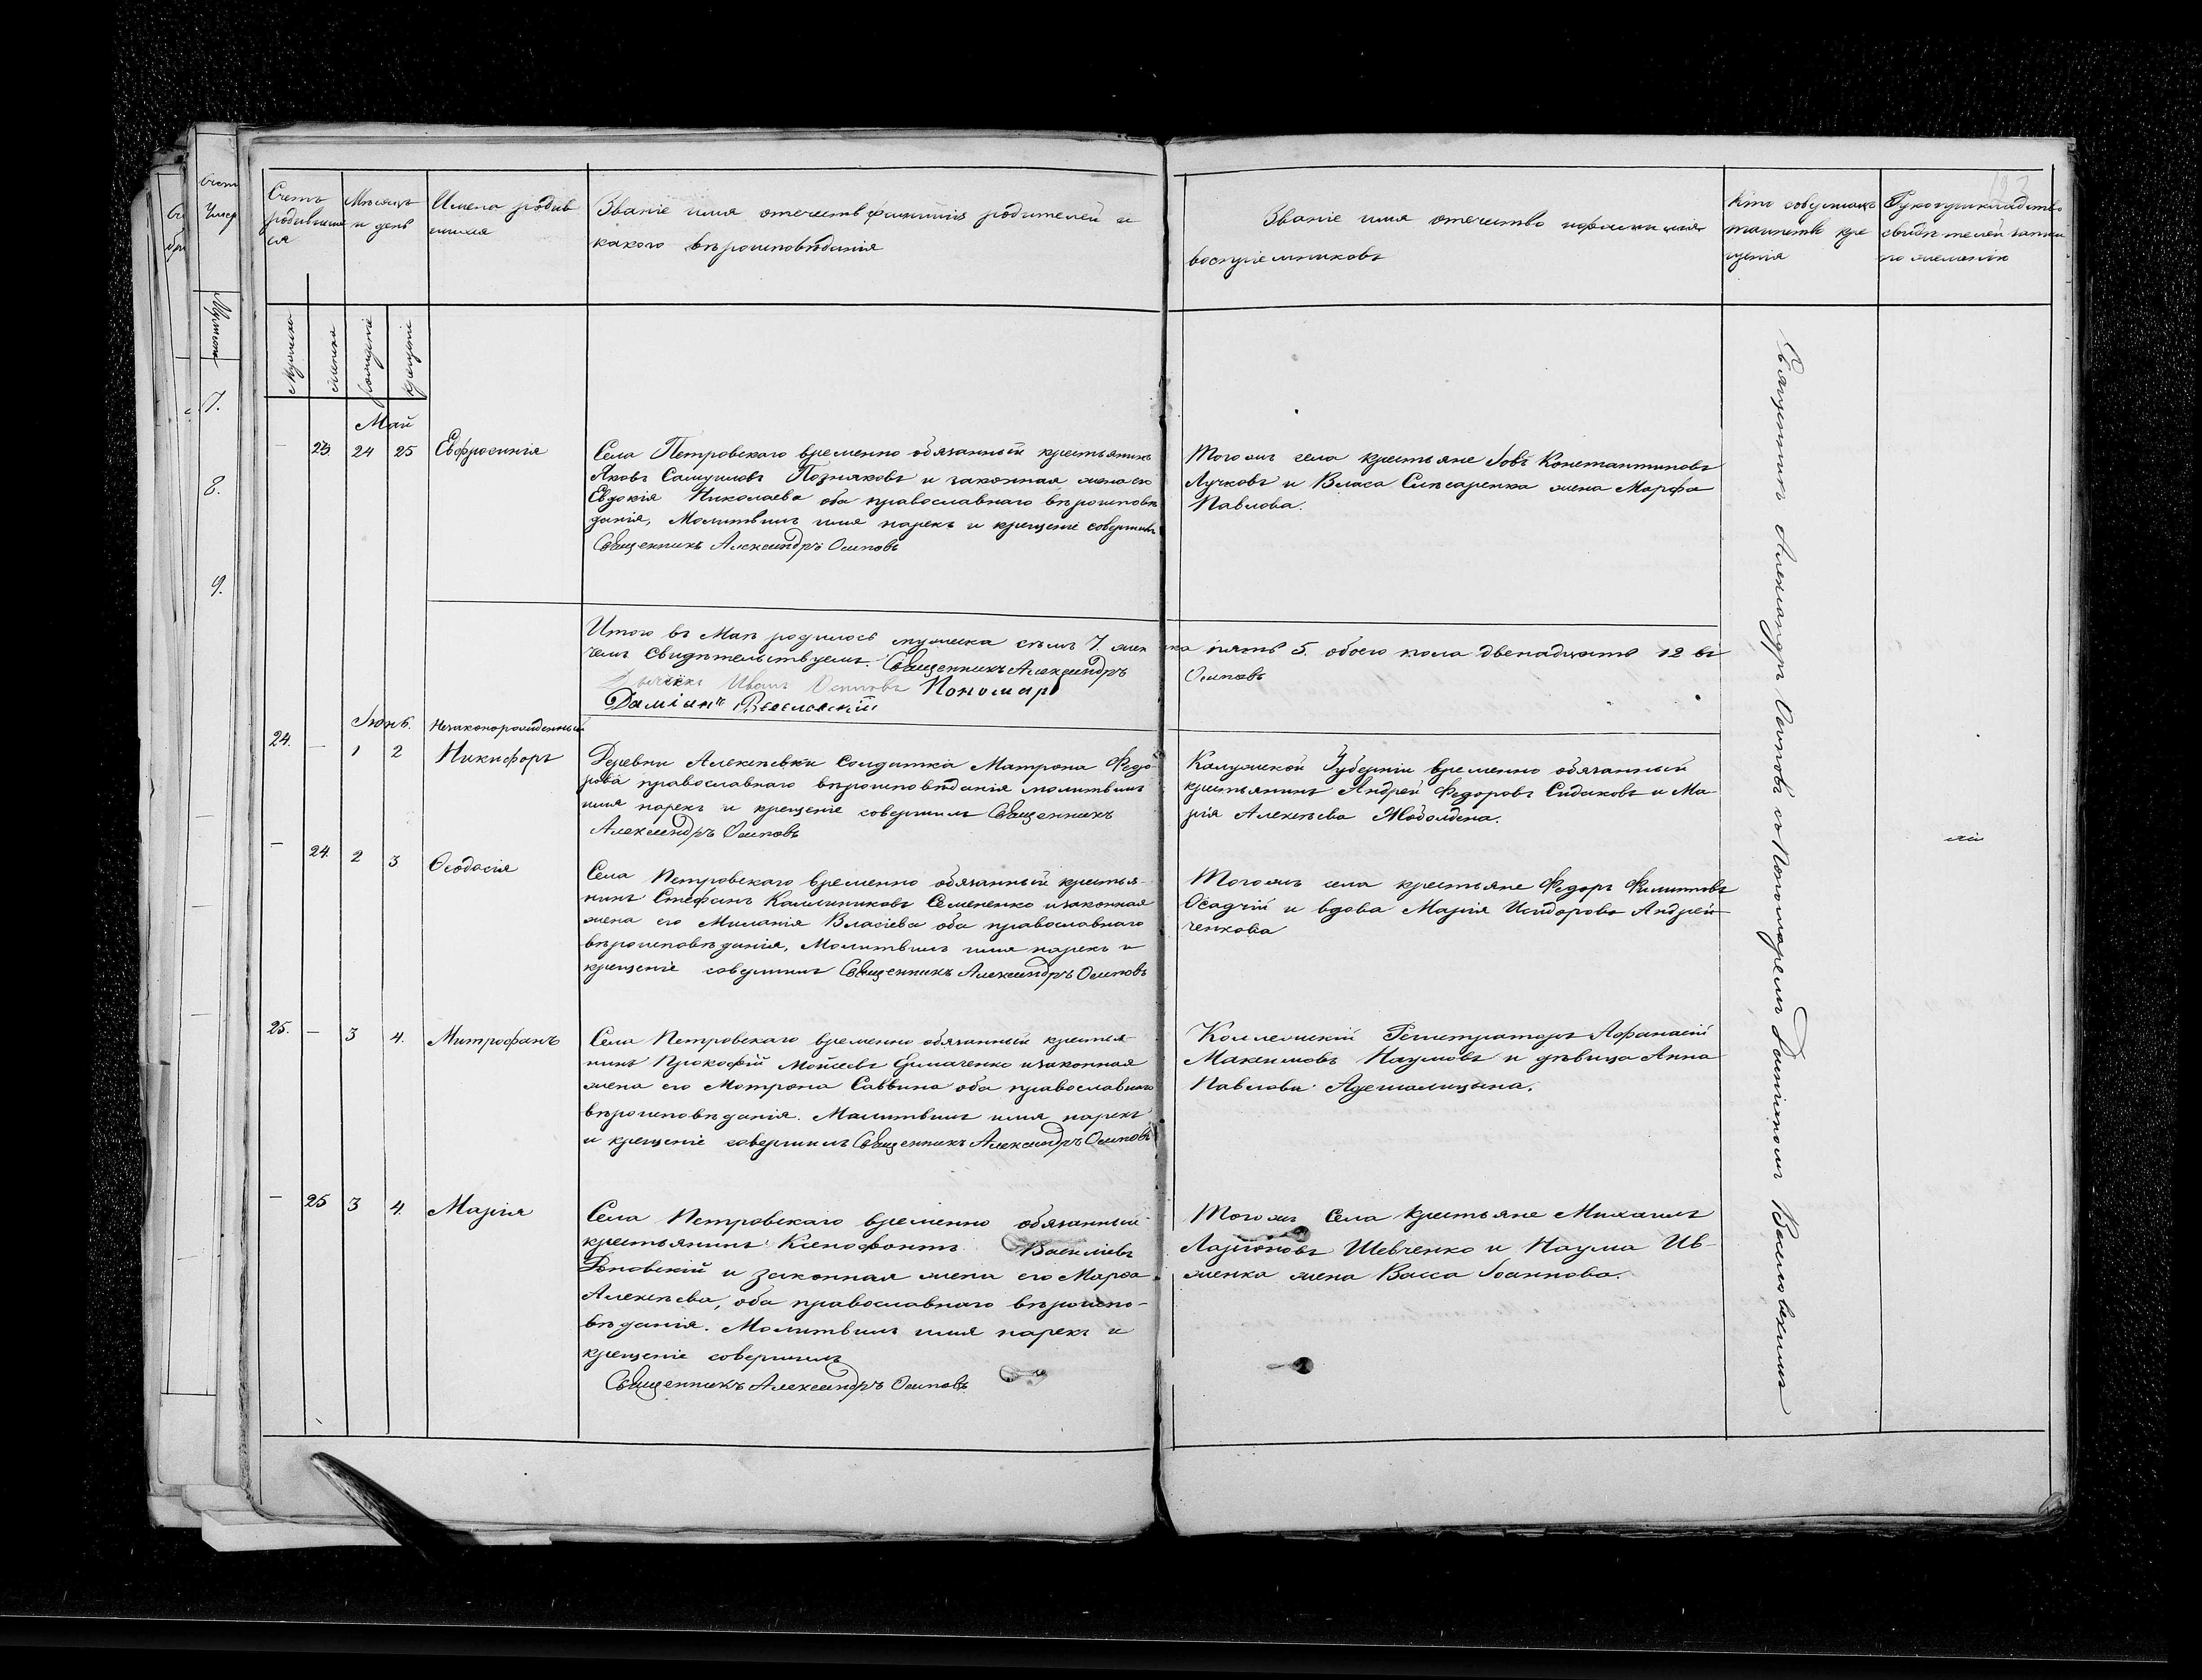 Счетъ родившихся
Мѣсяцъ и день
Имена родившихся
Званіе имя отечество фамилія родителей и
какого вѣроисповѣданія
Званіе имя отечество и фамилія
воспріемниковъ
Кто совершалъ таинство крещенія
Рукоприкладство свидѣтелей записи по желанію
мужеска
женска
рожденіе
крещеніе
Май
— 23 24 25 Евфросинія
Села Петровскаго временно обязанный крестьянинъ
Яковъ Самуиловъ Позняковъ и законная жена его
Евдокія Николаева оба православнаго вѣроисповѣ
данія, Молитвилъ имя нарекъ и крещеніе совершилъ
Священникъ Александръ Осиповъ
Тогожъ села крестьяне Іовъ Константиновъ
Лучковъ и Власа Слѣсаренка жена Марфа
Павлова.
Итого въ Маѣ родилось мужеска семь 7. женска пять 5. обоего пола двенадцать 12 въ
чемъ свидѣтельствуемъ. Священникъ Александръ
Осиповъ
Иванъ Осиповъ Пономарь
Даміанъ
Іюнь. Незаконорожденный
24. — 1 2 Никифоръ
Деревни Алексѣевки Солдатка Матрона Федо-
рова православнаго вѣроисповѣданія молитвилъ
имя нарекъ и крещеніе совершилъ Священникъ
Александръ Осиповъ
Калужской Губерніи временно обязанный
крестьянинъ Андрей Федоровъ Сидаковъ и Ма-
рія Алексѣева
— 24. 2 3 Ѳеодосія
Села Петровскаго временно обязанный крестья-
нинъ Стефанъ Каллиниковъ Семененко и законная
жена его Миланія Власіева оба православнаго
вѣроисповѣданія, Молитвилъ имя нарекъ и
крещеніе совершилъ Священникъ Александръ Осиповъ
Тогожъ села крестьяне Федоръ Филипповъ
Осадчій и вдова Марія Исидорова Андрей-
ченкова
25. — 3 4. Митрофанъ
Села Петровскаго временно обязанный крестья-
нинъ Прокофій Мойсеевъ Ермаченко и законная
жена его Мотрона Саввина оба православнаго
вѣроисповѣданія. Молитвилъ имя нарекъ
и крещеніе совершилъ Священникъ Александръ Осиповъ
Коллежскій Регистраторъ Афанасій
Максимовъ Наумовъ и дѣвица Анна
Павлова
— 25 3 4. Марія
Села Петровскаго временно обязанный
крестьянинъ Ксенофонтъ Василіевъ
и законная жена его Марѳа
Алексѣева, оба православнаго вѣроиспо-
вѣданія. Молитвилъ имя нарекъ и
крещеніе совершилъ
Священникъ Александръ Осиповъ
Тогожъ Села крестьяне Михаилъ
Ларіоновъ Шевченко и Наума Ив-
женка жена Васса Іоаннова.
Священникъ Александръ Осиповъ съ Пономаремъ Даміаномъ
7.
8.
9.